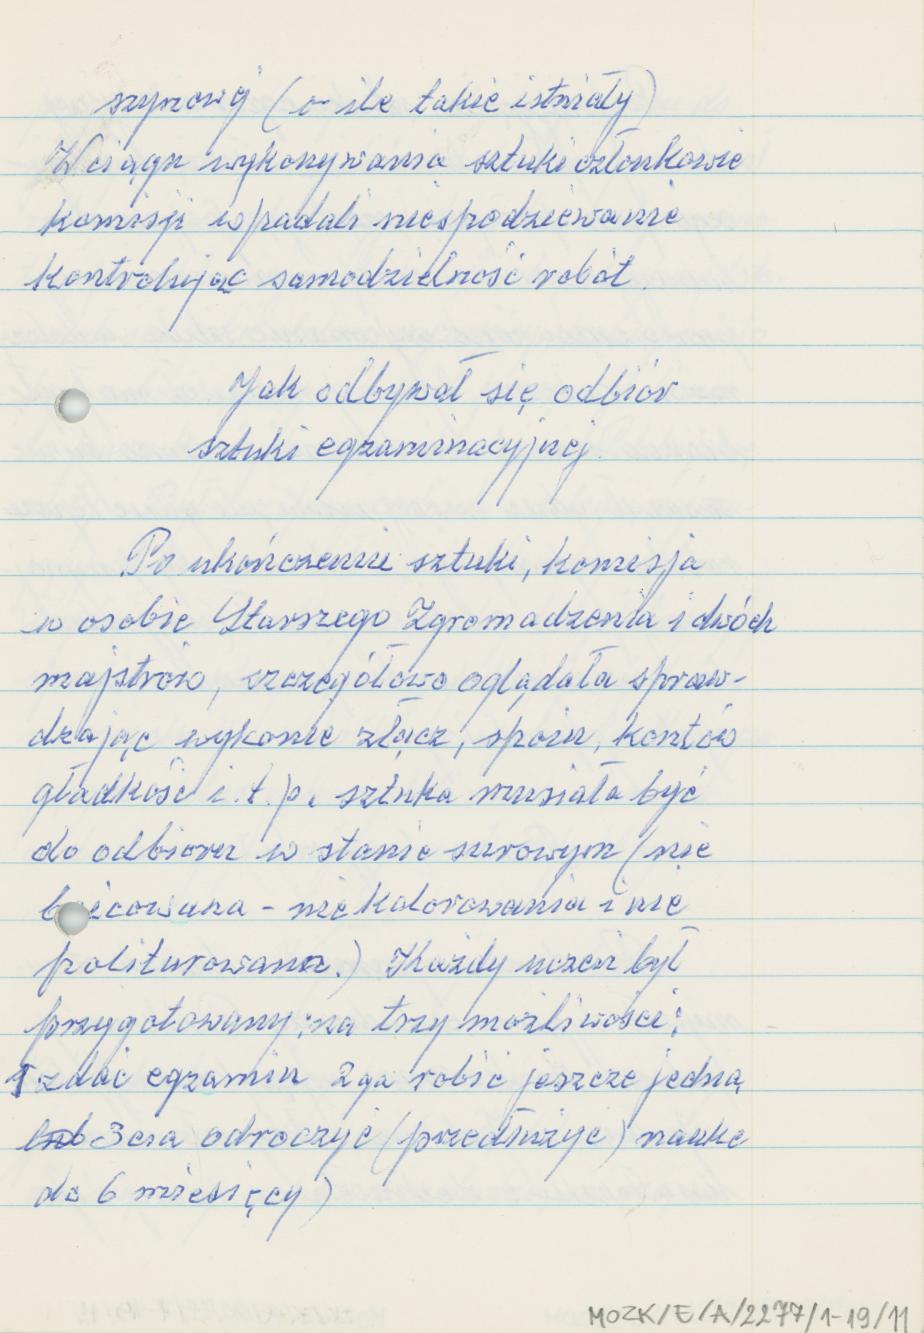 szynowej (o ile takie istniały)
W ciągu wykonywania sztuki członkowie
komisji wpadali niespodziewanie
kontrolując samodzielność robót
Jak odbywał się odbiór
sztuki egzaminacyjnej.
Po ukończeniu sztuki, komisja
w osobie Starszego Zgromadzenia i dwóch
majstrów, szczegółowo oglądała spraw-
dzając wykonie złącz, spoin, kontów
gładkość i.t.p. sztuka musiała być
do odbioru w stanie surowym (nie
bejcowana - nie kolorowania i nie
politurowana.) Każdy uczeń był
przygotowany; na trzy możliwości;
1 zdać egzamin 2ga robić jeszcze jedną
lub 3cia odroczyć (przedłużyć) naukę
do 6 miesięcy)
MOZK/E/A/2277/1-19/11